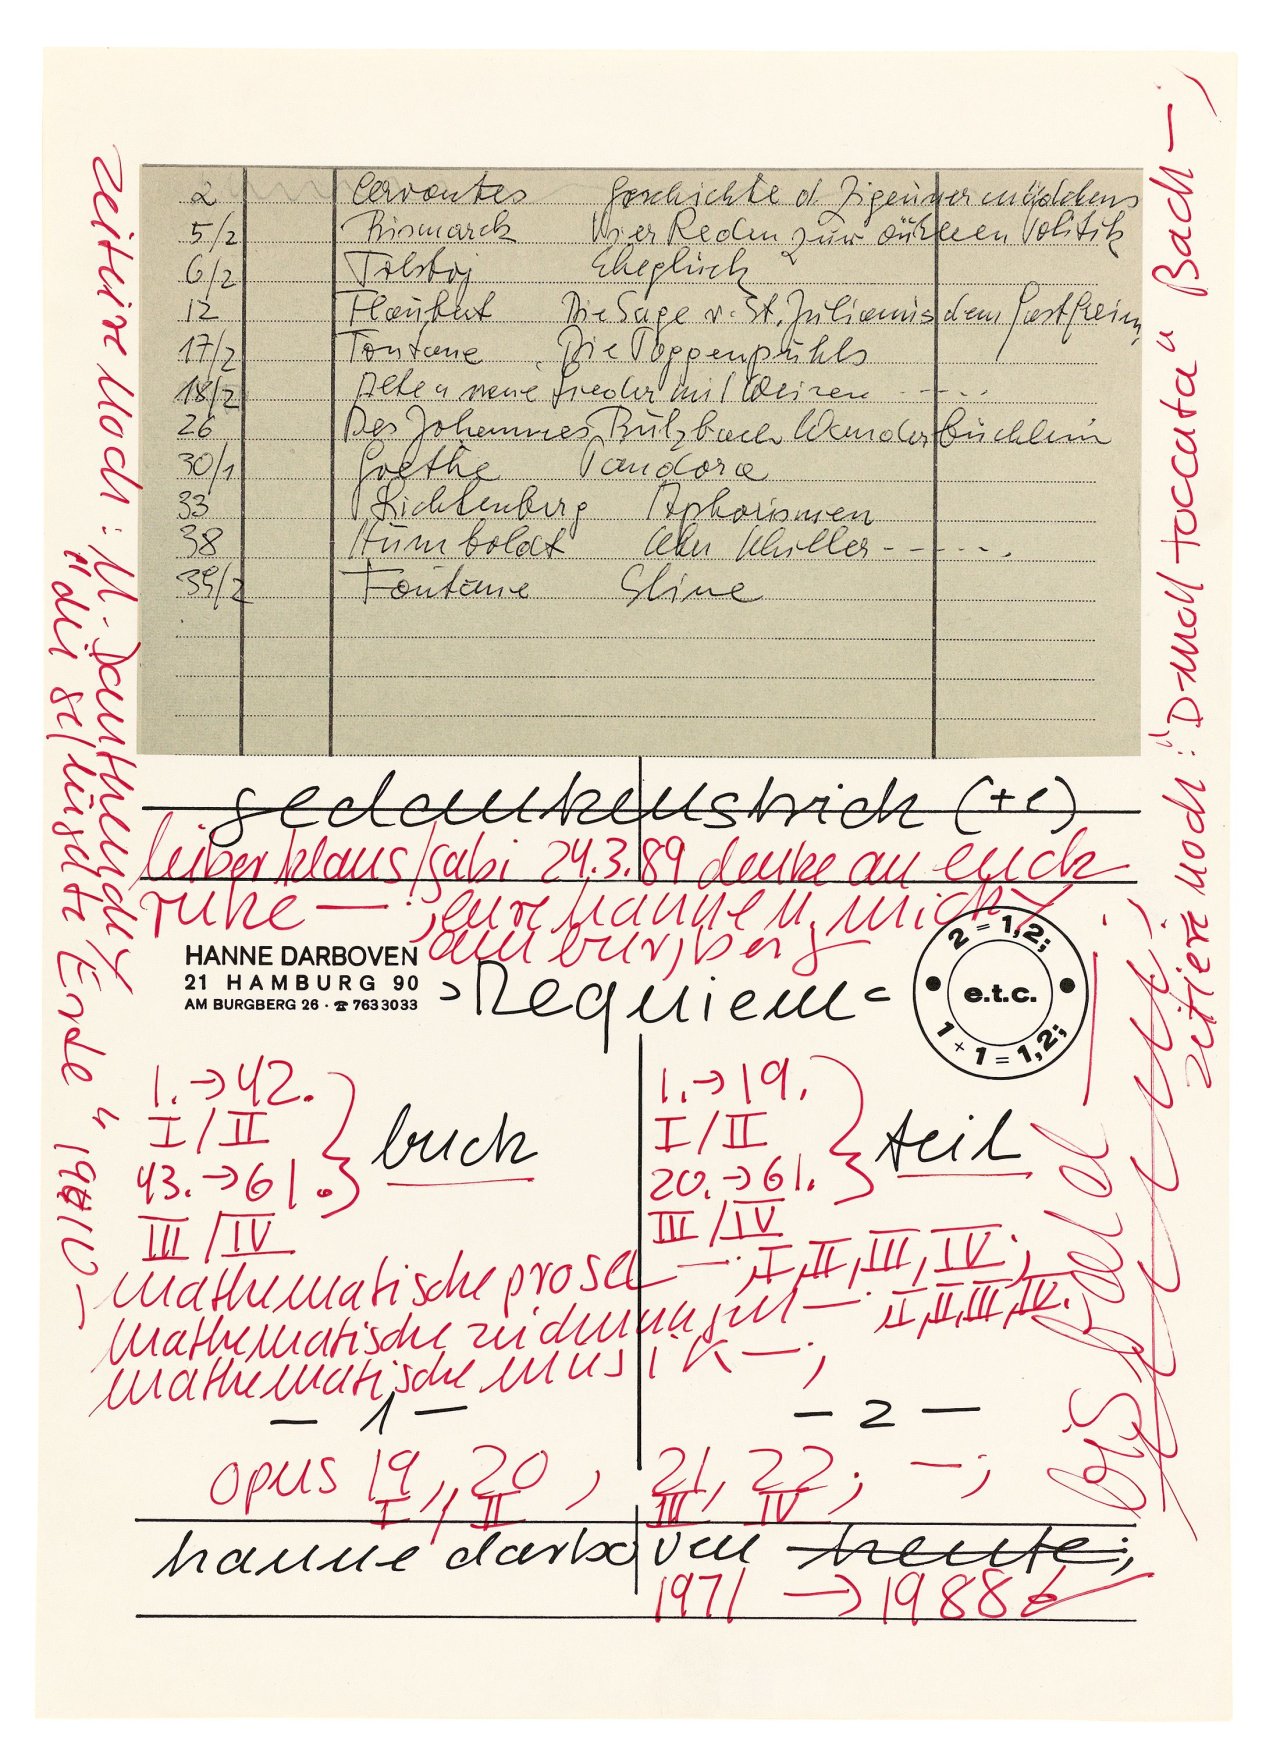 2 Cervantes Geschichte d Zigeunermädchens
5/2 Bismarck Vier Reden zur äußeren Politik
6/2 Tolstoj Eheglück
12 Flaubert Die Sage v. St. Julianus dem Gastfreien
17/2 Fontane Die Poggenpuhls
18/2 Alte u neue Lieder mit Weisen - - - -
26 Des Johannes Butzbach Wanderbüchlein
30/1 Goethe Pandora
33 Lichtenberg Aphorismen
38 Humboldt Über Schiller - - - - -
39/2 Fontane
gedankenstrich (+c)
lieber klaus/gabi 24.3.89 denke an euch
ruhe — ; eure hanne u. micky
am burgberg
HANNE DARBOVEN
21 HAMBURG 90
AM BURGBERG 26 · ☎ 763 3033
>Requiem<
2 = 1,2;
e.t.c.
1 + 1 = 1,2;
1. → 42.
I / II
43. → 61.
III / IV
buch
1. → 19.
I / II
20. → 61.
III / IV
teil
mathematische prosa — ; I, II, III, IV ;
mathematische zeichnungen — ; I, II, III, IV. ;
mathematische musik — ;
— 1 —
— 2 —
opus 19, 20, 21, 22; — ;
I, II III IV
hanne darboven heute;
1971 → 1988
zeitiere noch: M. Dauthendey
"die geflügelte Erde" 1910 —
zitiere noch: "D-moll toccata" Bach — ;
bis bald